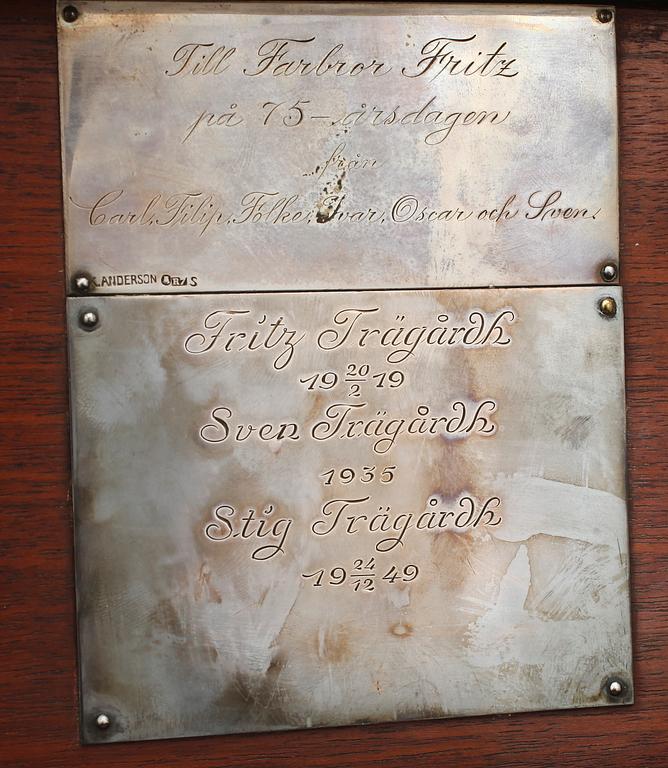 Till Farbror Fritz
på 75-årsdagen
från
Carl, Filip, Folke, Ivar, Oscar och Sven.
K. ANDERSON S
Fritz Trägårdh
19 20/2 19
Sven Trägårdh
1935
Stig Trägårdh
19 24/12 49